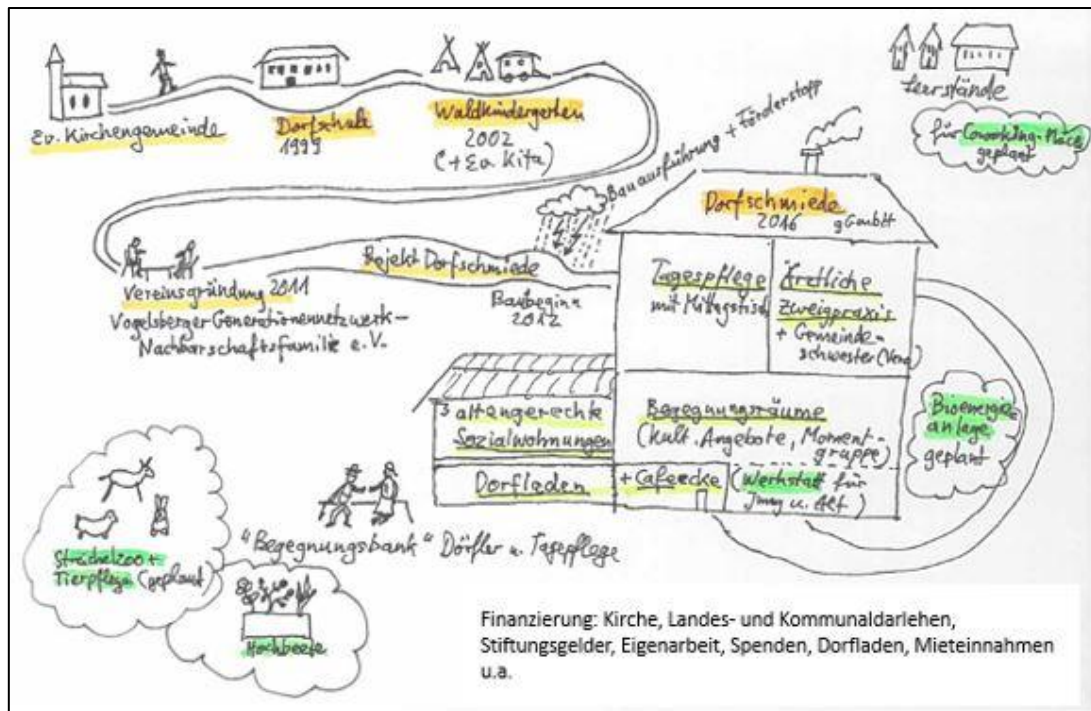 Ev. Kirchengemeinde
Dorfschule
1999
Waldkindergarten
2002
(+ Ev. Kita)
Leerstände
für Coworking-Place
geplant
Bauausführung + Förderstopp
Dorfschmiede
2016 gGmbH
Vereinsgründung 2011
Vogelsberger Generationennetzwerk-
Nachbarschaftsfamilie e.V.
Projekt Dorfschmiede
Baubeginn
2012
Tagespflege
mit Mittagstisch
Ärztliche
Zweigpraxis
+ Gemeinde-
schwester (Vera)
3 altengerechte
Sozialwohnungen
Begegnungsräume
(kult. Angebote, Moment-
gruppe)
Dorfladen
+ Cafeecke
(Werkstatt für
Jung u. Alt)
Bioenergie
anlage
geplant
"Begegnungsbank" Dörfler u. Tagespflege
Streichelzoo +
Tierpflege (geplant)
Hochbeete
Finanzierung: Kirche, Landes- und Kommunaldarlehen,
Stiftungsgelder, Eigenarbeit, Spenden, Dorfladen, Mieteinnahmen
u.a.